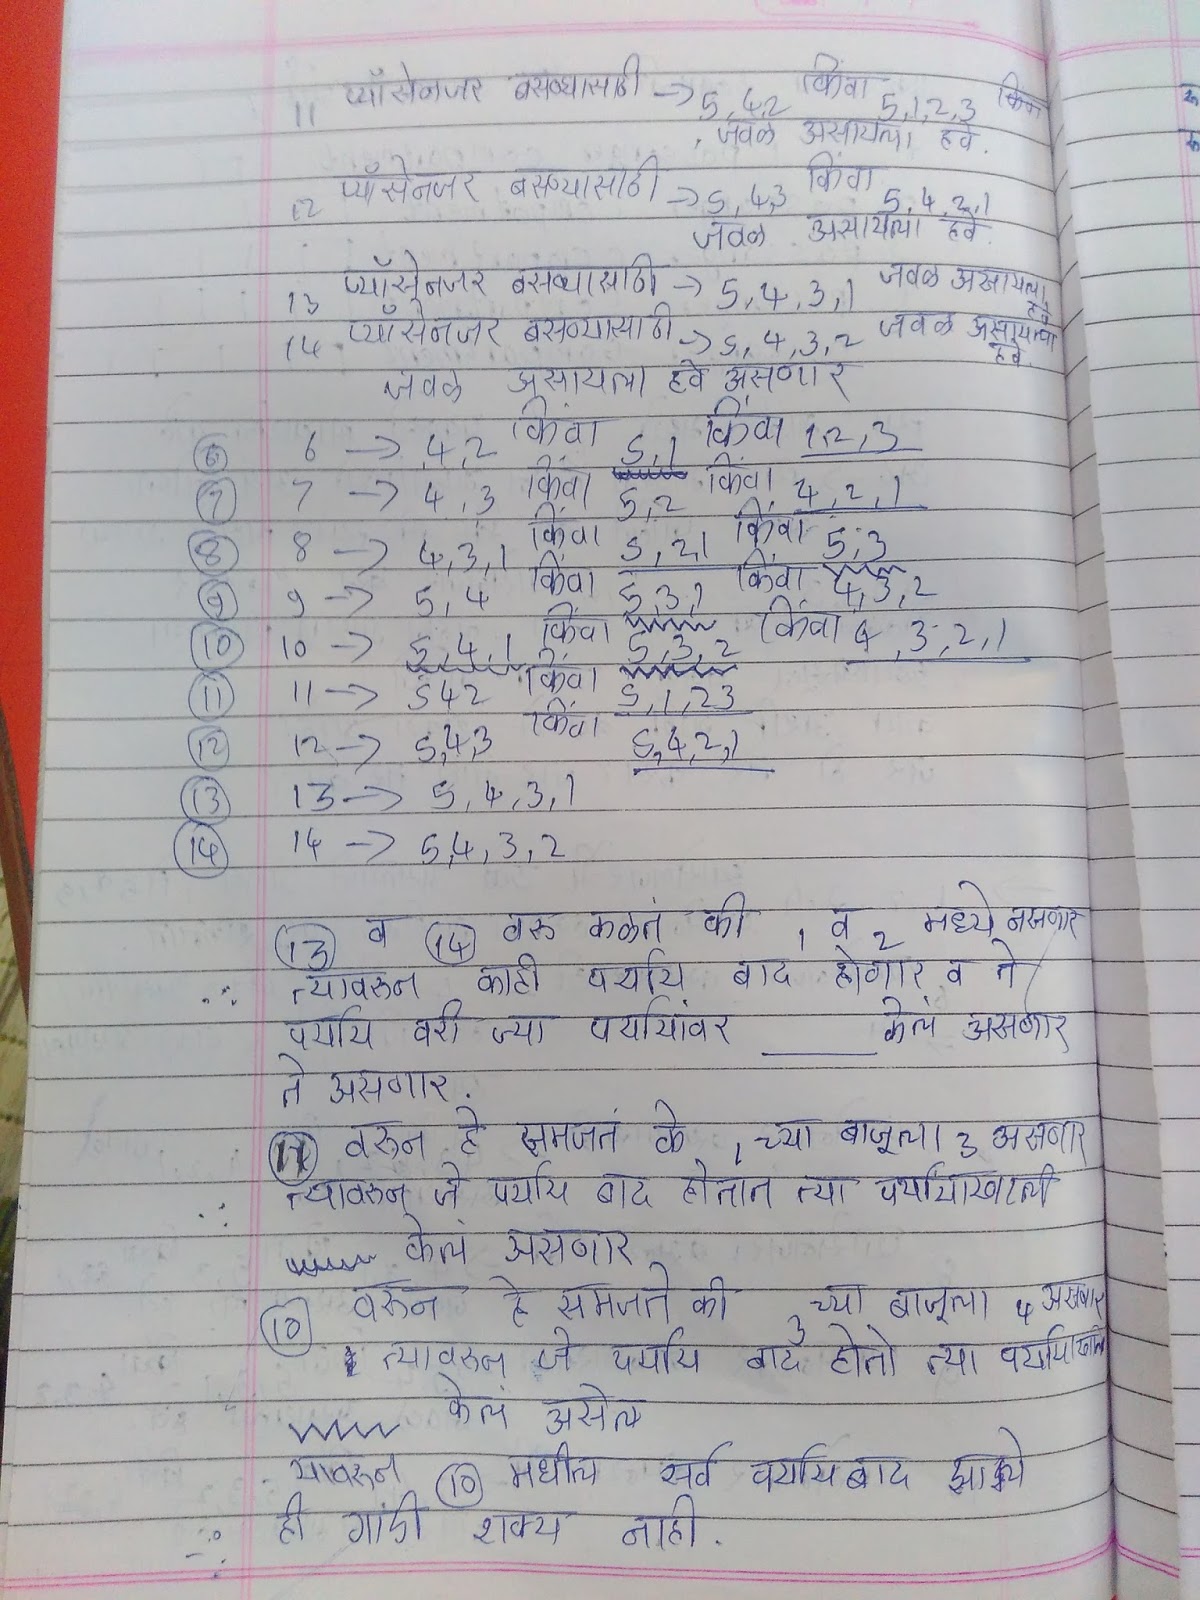 11 प्यॉसेनजर बसण्यासाठी → 5,4,2 किंवा 5,1,2,3 किंवा
जवळ असायला हवे.
12 प्यॉसेनजर बसण्यासाठी → 5,4,3 किंवा 5,4,2,1
जवळ असायला हवे.
13 प्यॉसेनजर बसण्यासाठी → 5,4,3,1 जवळ असायला हवे
14 प्यॉसेनजर बसण्यासाठी → 5,4,3,2 जवळ असायला हवे.
जवळ असायला हवे असणार
6 6 → 4,2 किंवा 5,1 किंवा 1,2,3
7 7 → 4,3 किंवा 5,2 किंवा 4,2,1
8 8 → 4,3,1 किंवा 5,2,1 किंवा 5,3
9 9 → 5,4 किंवा 5,3,1 किंवा 4,3,2
10 10 → 5,4,1 किंवा 5,3,2 किंवा 4,3,2,1
11 11 → 542 किंवा 5,1,23
12 12 → 5,4,3 किंवा 5,4,2,1
13 13 → 5,4,3,1
14 14 → 5,4,3,2
13 व 14 वरू कळतं की 1 व 2 मध्ये नसणार
∴ त्यावरून काही पर्याय बाद होणार व ते
पर्याय वरी ज्या पर्यायांवर ____ केलं असणार
ते असणार.
11 वरून हे समजतं के 1 च्या बाजूला 3 असणार
∴ त्यावरून जे पर्याय बाद होतात त्या पर्यायाखाली
केलं असणार
10 वरून हे समजते की 3 च्या बाजूला 4 असणार
त्यावरून जे पर्याय बाद होतो त्या पर्यायाखाली
केलं असेल
यावरून 10 मधील सर्व पर्याय बाद झाले
∴ ही गाडी शक्य नाही.